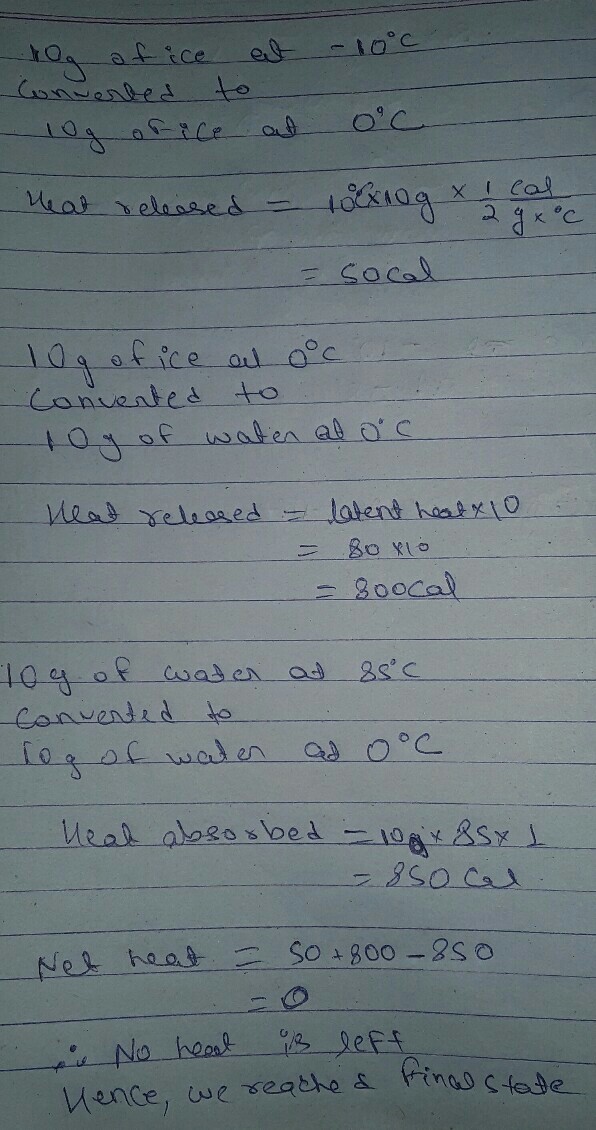 10g of ice at -10°C
Converted to
10g of ice at 0°C
Heat released = 10°C×10g × 1/2 cal/g×°C
= 50cal
10g of ice at 0°C
Converted to
10g of water at 0°C
Heat released = latent heat×10
= 80×10
= 800Cal
10g of water at 85°C
Converted to
10g of water at 0°C
Heat absorbed = 10g × 85 × 1
= 850 Cal
Net heat = 50+800-850
= 0
∴ No heat is left
Hence, we reached final state